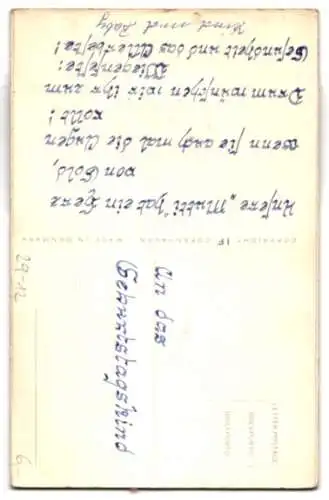 Unsere „Mutti" hat ein Herz
von Gold,
wenn sie auch mal die Augen
rollt!
Drum wünschen wir ihr zum
Wiegenfeste:
Gesundheit und das Allerbeste!
Kind und Baby
An das
Geburtstagskind
COPYRIGHT IF COPENHAGEN MADE IN DENMARK
29-12
6-